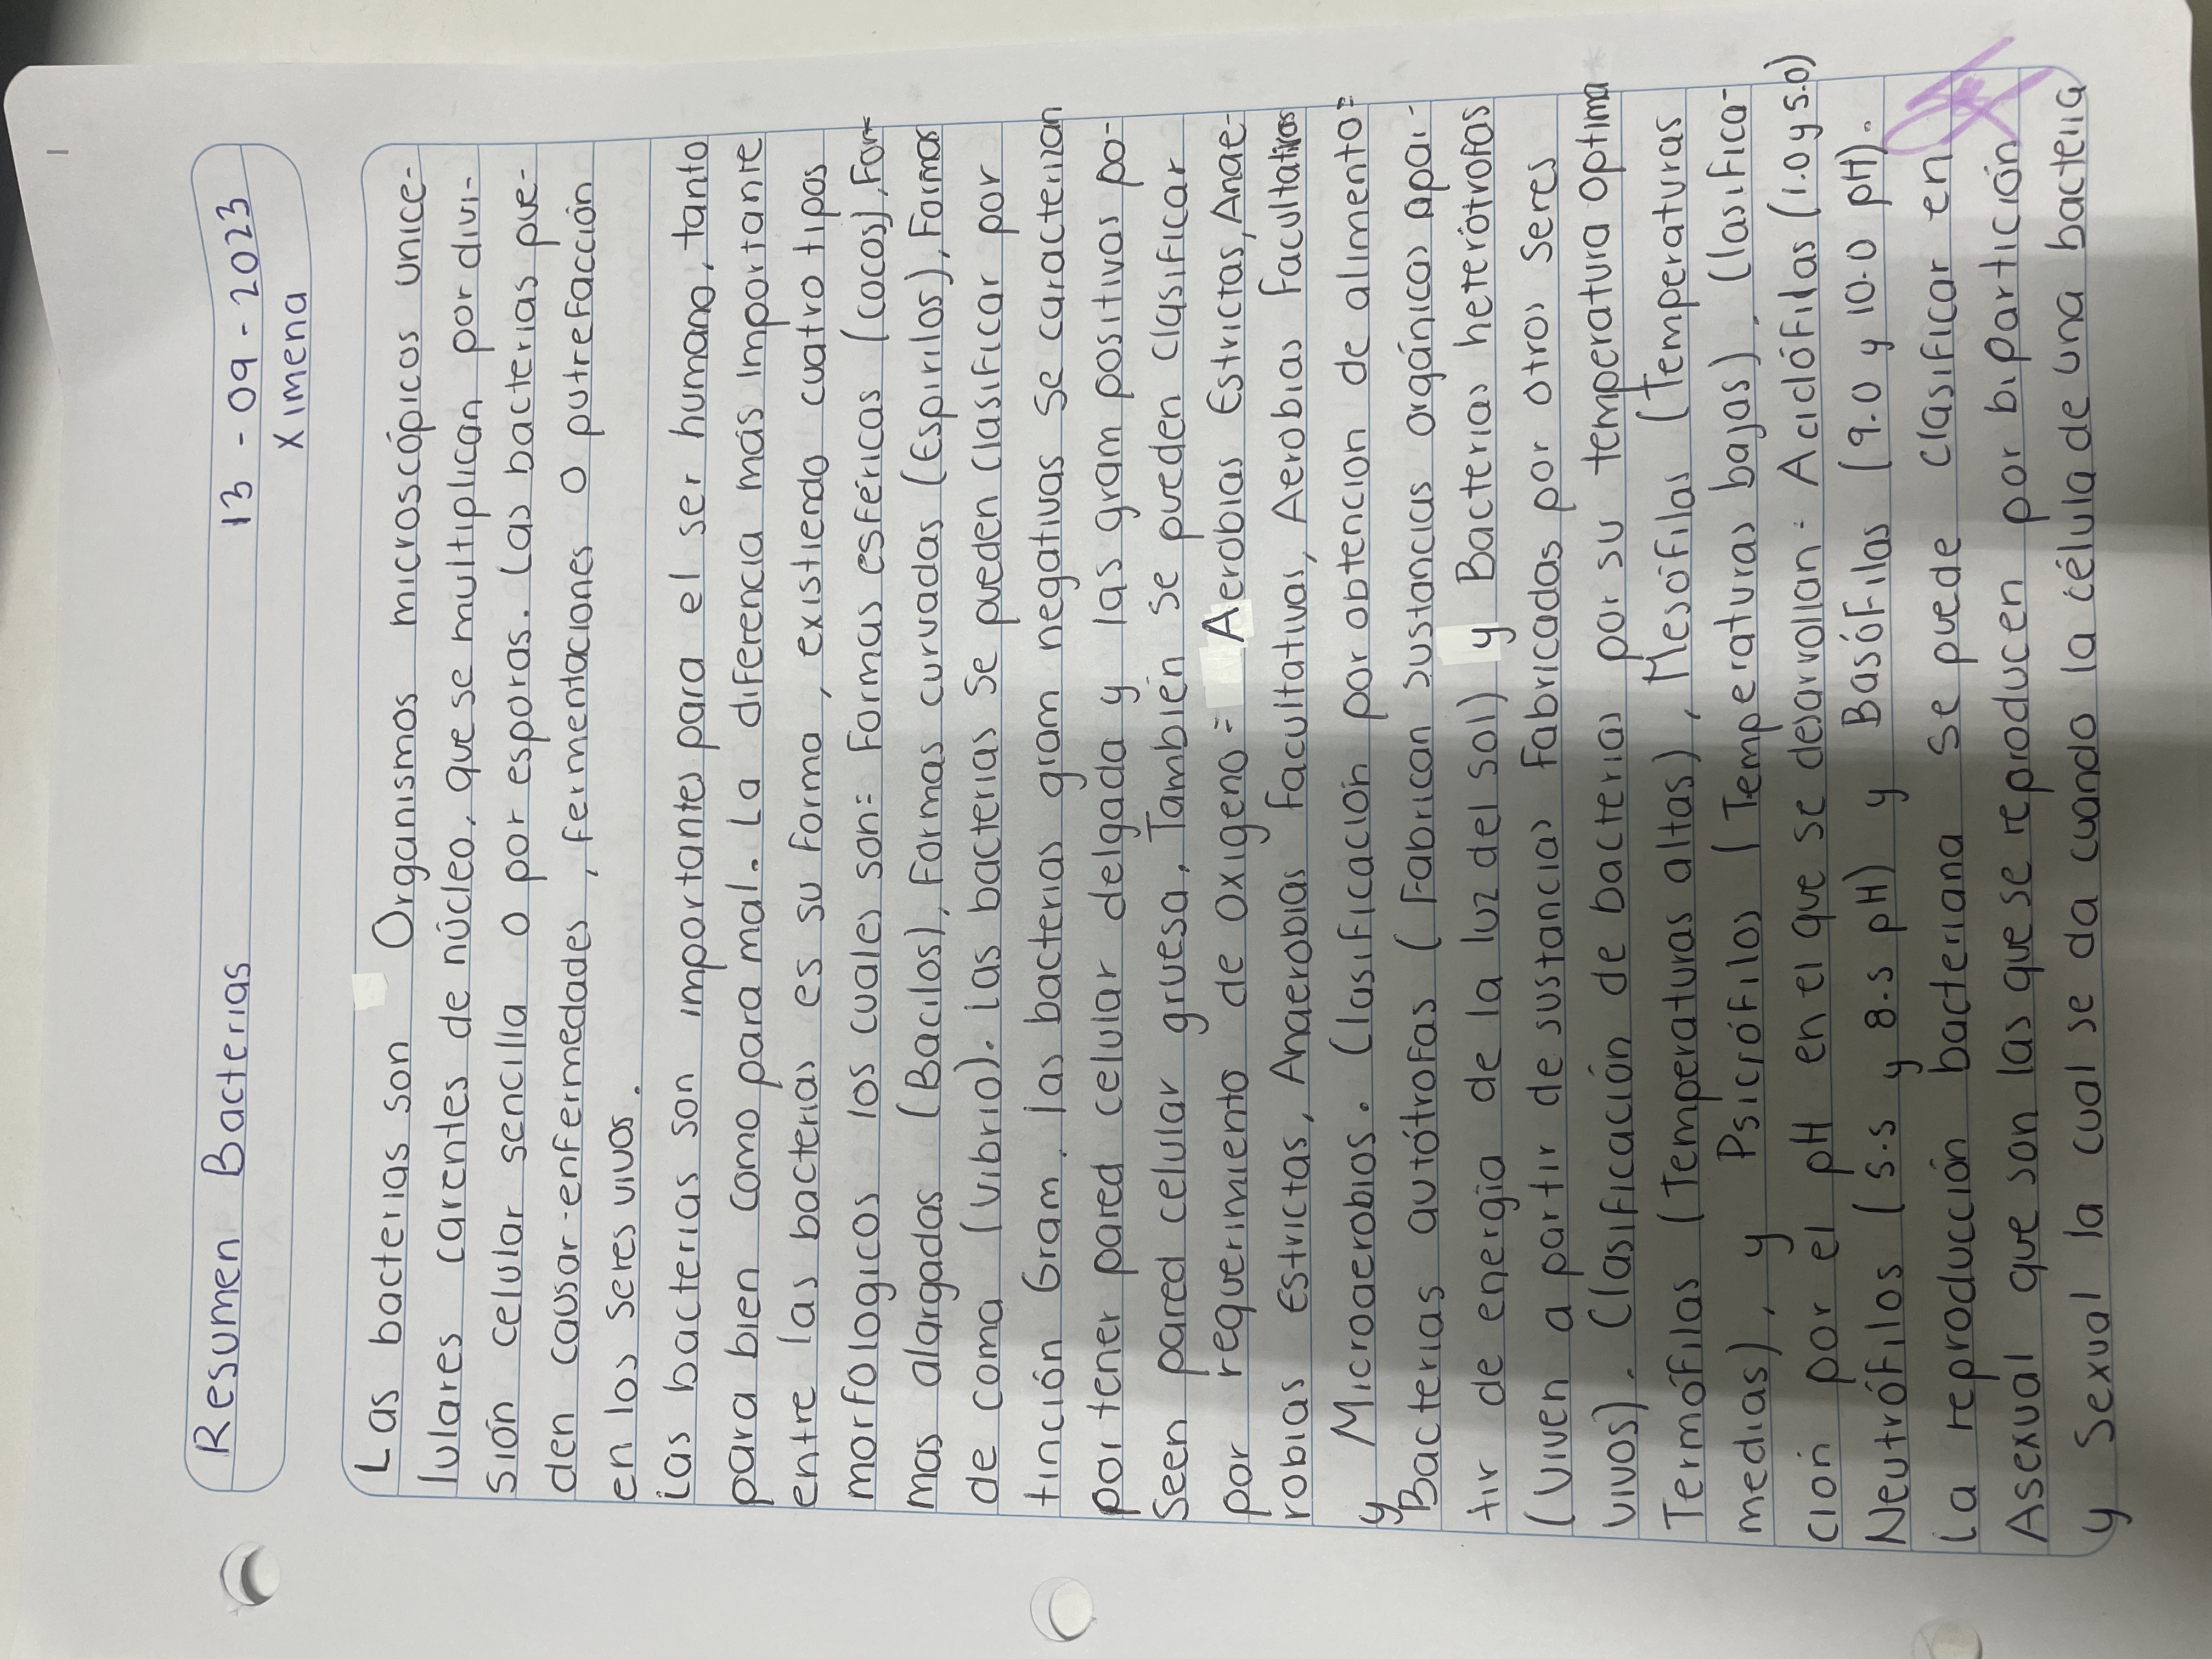 Resumen Bacterias 13-09-2023
Ximena
Las bacterias son Organismos microscópicos unice-
lulares carentes de núcleo, que se multiplican por divi-
sión celular sencilla o por esporas. Las bacterias pue-
den causar enfermedades, fermentaciones o putrefacción
en los seres vivos.
Las bacterias son importantes para el ser humano, tanto
para bien como para mal. La diferencia más importante
entre las bacterias es su forma, existiendo cuatro tipos
morfologicos los cuales son: Formas esféricas (cocos), For-
mas alargadas (Bacilos), Formas curvadas (Espirilos), Formas
de coma (vibrio). Las bacterias se pueden clasificar por
tinción Gram, las bacterias gram negativas se caracterizan
por tener pared celular delgada y las gram positivas po-
seen pared celular gruesa, También se pueden clasificar
por requerimiento de oxigeno: Aerobias Estrictas, Anae-
robias estrictas, Anaerobias facultativas, Aerobias facultativas
y Microaerobios. Clasificación por obtencion de alimento:
Bacterias autótrofas (Fabrican sustancias orgánicas apar-
tir de energía de la luz del sol) y Bacterias heterótrofas
(viven a partir de sustancias fabricadas por otros seres
vivos). Clasificación de bacterias por su temperatura optima
Termófilas (Temperaturas altas), Mesófilas (Temperaturas
medias), y Psicrófilos (Temperaturas bajas), Clasifica-
ción por el pH en el que se desarrollan: Acidófilas (1.0 y 5.0)
Neutrófilos (5.5 y 8.5 pH) y Basófilas (9.0 y 10.0 pH).
La reproducción bacteriana se puede clasificar en
Asexual que son las que se reproducen por bipartición
y Sexual la cual se da cuando la célula de una bacteria